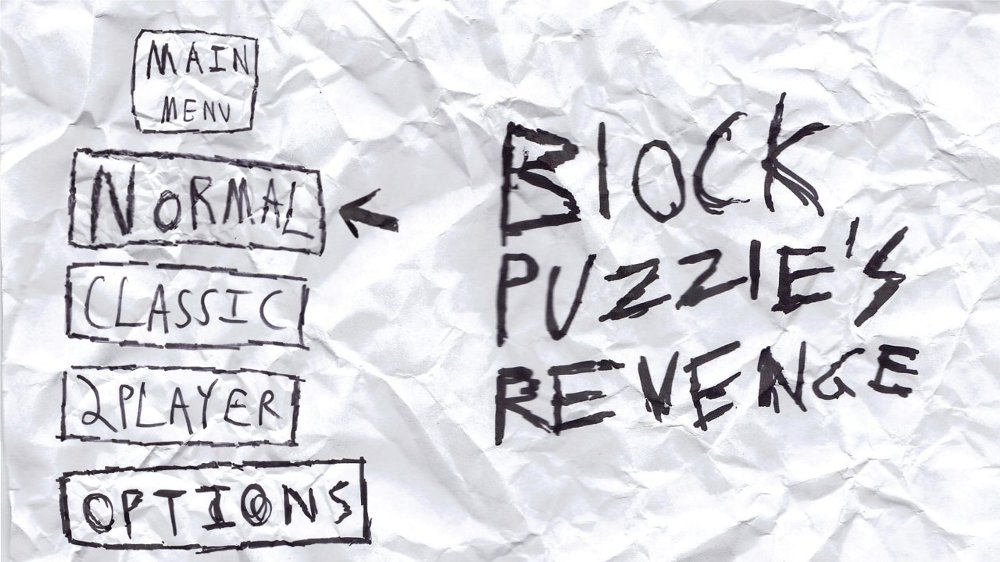 MAIN
MENU
NORMAL
CLASSIC
2PLAYER
OPTIONS
BlOCK
PUZZlE'S
REVENGE